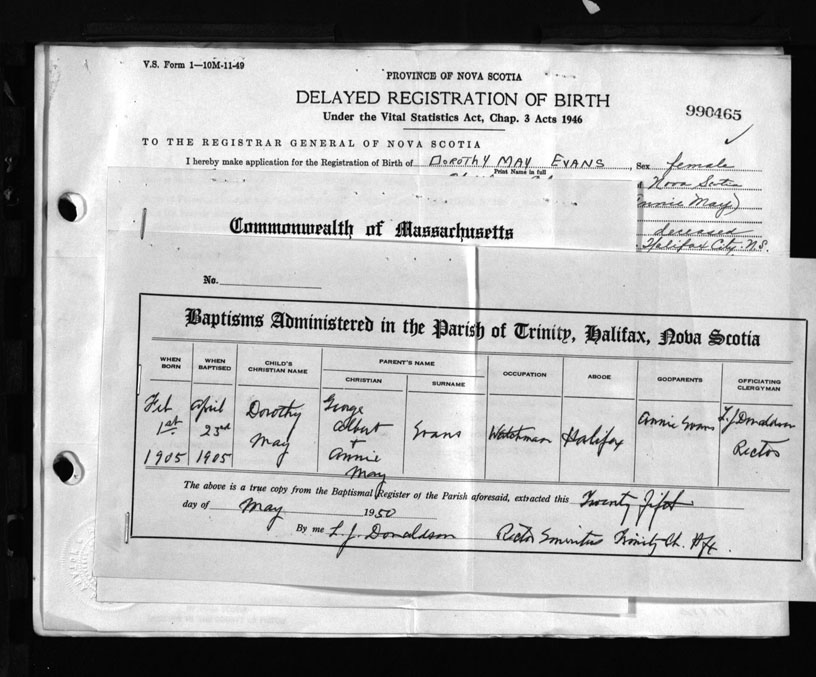 V.S. Form 1—10M-11-49
PROVINCE OF NOVA SCOTIA
DELAYED REGISTRATION OF BIRTH
990465
Under the Vital Statistics Act, Chap. 3 Acts 1946
TO THE REGISTRAR GENERAL OF NOVA SCOTIA
I hereby make application for the Registration of Birth of DOROTHY MAY EVANS, Sex female
Print Name in full
Nova Scotia
(Annie May)
deceased
Halifax City. N.S.
Commonwealth of Massachusetts
No.
Baptisms Administered in the Parish of Trinity, Halifax, Nova Scotia
WHEN BORN
WHEN BAPTISED
CHILD'S CHRISTIAN NAME
PARENT'S NAME
CHRISTIAN
SURNAME
OCCUPATION
ABODE
GODPARENTS
OFFICIATING CLERGYMAN
Feb 1st 1905
April 23rd 1905
Dorothy May
George Albert + Annie May
Evans
Watchman
Halifax
Annie Evans
L. J. Donaldson Rector
The above is a true copy from the Baptismal Register of the Parish aforesaid, extracted this Twenty fifth
day of May 1950
By me L. J. Donaldson Rector Emeritus Trinity Ch. Hfx.